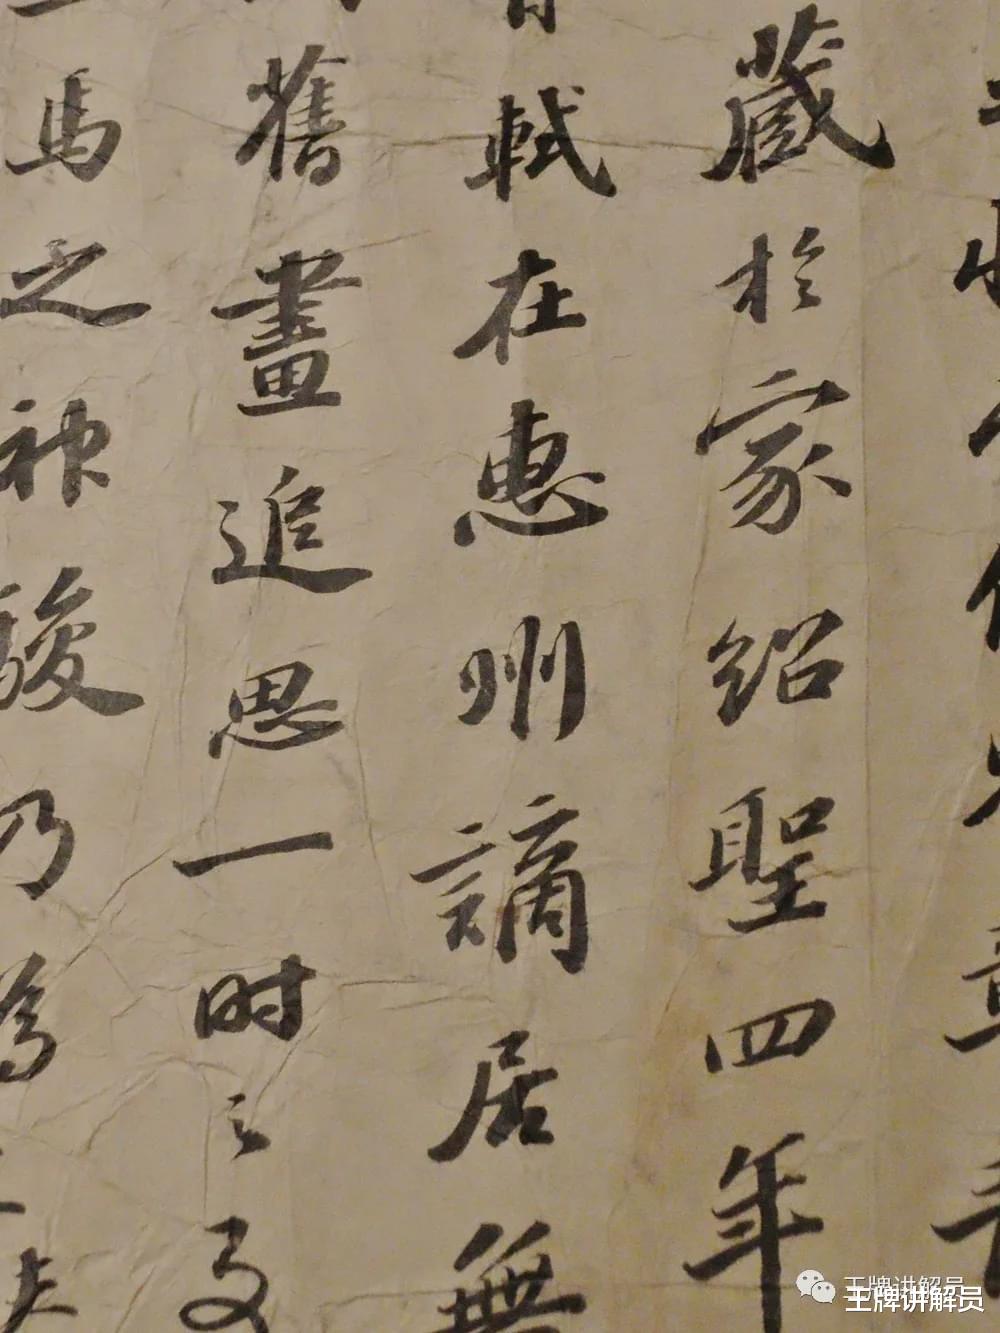 藏於家紹聖四年
軾在惠州謫居無
舊畫追思一時之
馬之神駿乃為
王牌讲解员
王牌讲解员